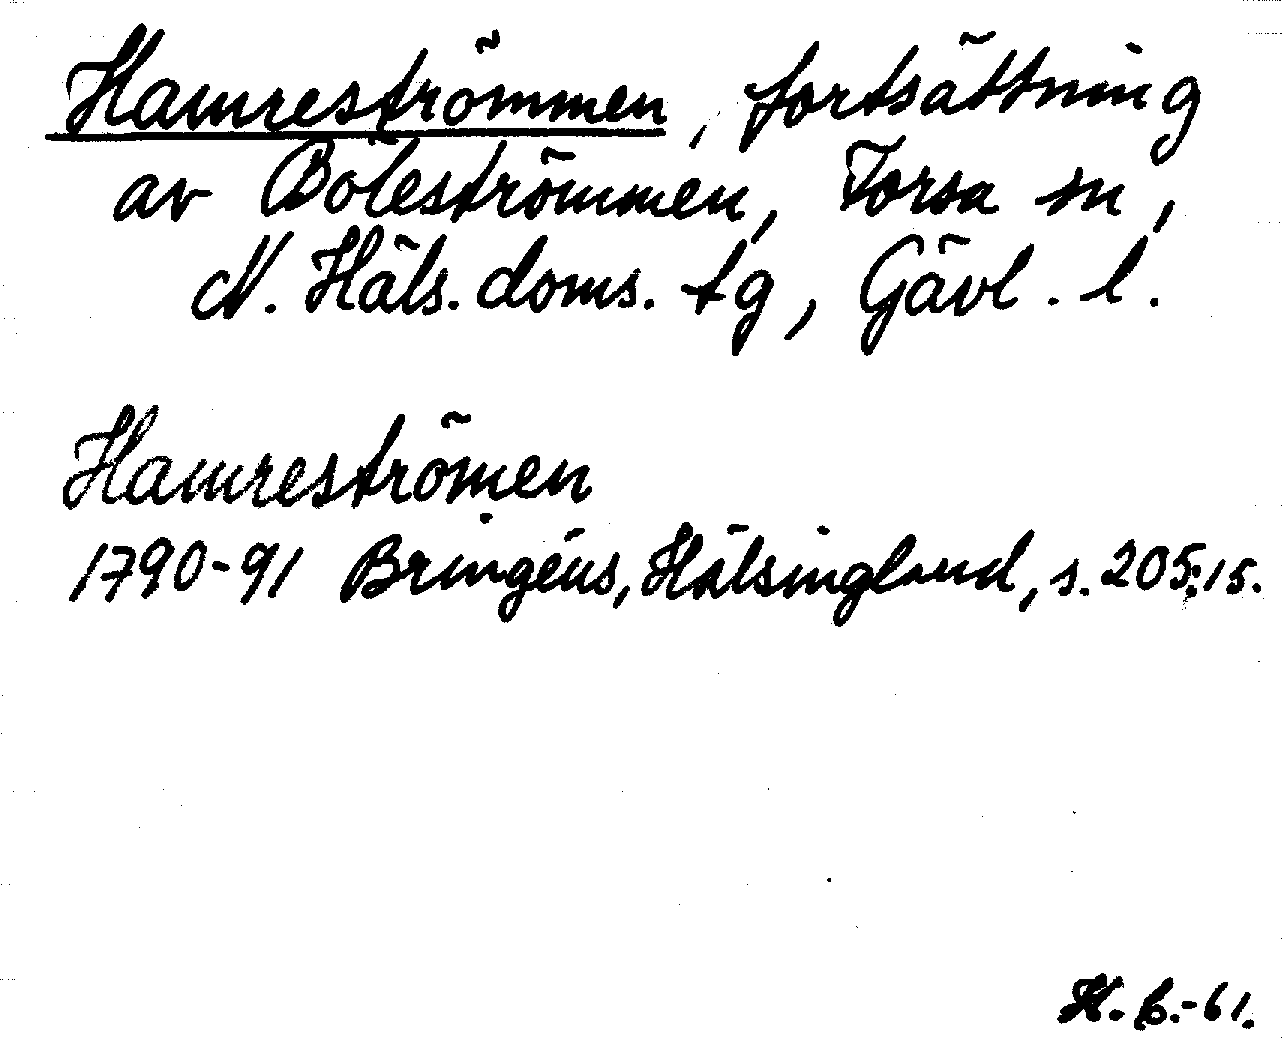 Hamreströmmen, fortsättning
av Böleströmmen, Torsa sn,
N. Häls. doms. tg, Gävl. l.
Hamreströmen
1790-91 Bringéus, Hälsingland, s. 205:15.
H. B.-61.